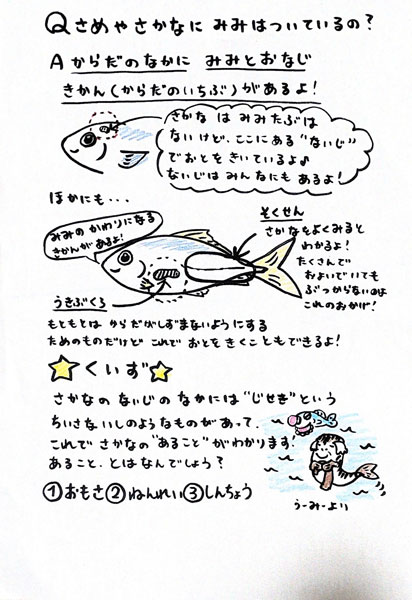 Qさめやさかなに みみはついているの?
A からだのなかに みみとおなじ
きかん(からだのいちぶ)があるよ!
さかな は みみたぶは
ないけど、ここにある"ないじ"
でおとをきいているよ♪
ないじは みんなにもあるよ!
ほかにも・・・
みみの かわりになる
きかんがあるよ!
そくせん
さかなをよくみると
わかるよ!
たくさんで
およいでいても
ぶつからないのは
これのおかげ!
うきぶくろ
もともとは からだがしずまないようにする
ためのものだけど これで おとを きくこともできるよ!
☆くいず☆
さかなの ないじの なかには"じせき"という
ちいさないしのようなものがあって、
これで さかなの"あること"がわかります!
あること、とはなんでしょう?
①おもさ②ねんれい③しんちょう
うーみーより